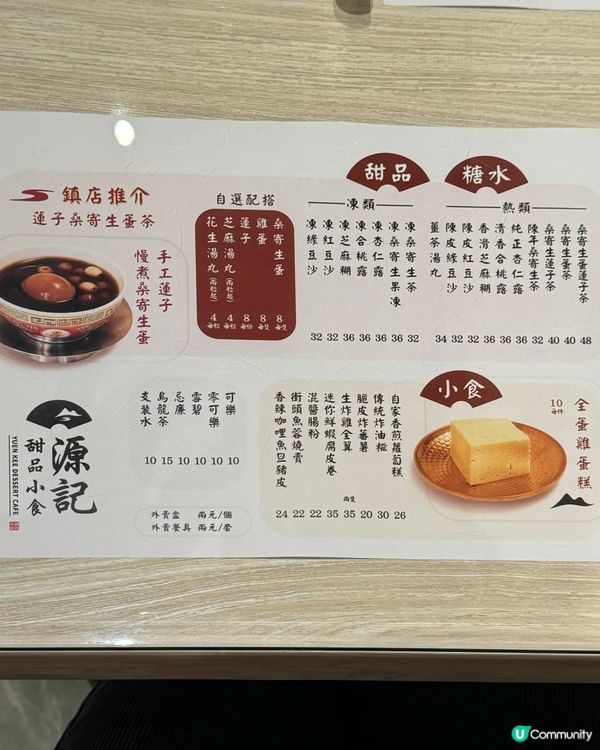 鎮店推介
蓮子桑寄生蛋茶
手工蓮子
慢煮桑寄生蛋
自選配搭
桑寄生蛋 8 每隻
雞蛋 8 每隻
蓮子 8 每份
芝麻湯丸（兩粒起） 4 每粒
花生湯丸（兩粒起） 4 每粒
甜品
糖水
凍類
凍桑寄生茶 32
凍桑寄生果凍 36
凍杏仁露 36
凍合桃露 36
凍芝麻糊 36
凍紅豆沙 32
凍綠豆沙 32
熱類
桑寄生蓮子蛋茶 48
桑寄生蛋茶 40
桑寄生蓮子茶 40
陳年桑寄生茶 32
純正杏仁露 36
清香合桃露 36
香滑芝麻糊 36
陳皮紅豆沙 32
陳皮綠豆沙 32
薑茶湯丸 34
源記
甜品小食
YUEN KEE DESSERT CAFE
可樂 10
零可樂 10
雪碧 10
忌廉 10
烏龍茶 15
支裝水 10
外賣盒 兩元/個
外賣餐具 兩元/套
小食
全蛋雞蛋糕
10 每件
自家香煎蘿蔔糕 26
傳統炸油糍 30
脆皮炸番薯 20
生炸雞全翼 兩隻 35
迷你鮮蝦腐皮卷 35
混醬腸粉 22
街頭魚蓉燒賣 22
香辣咖喱魚旦豬皮 24
U Community